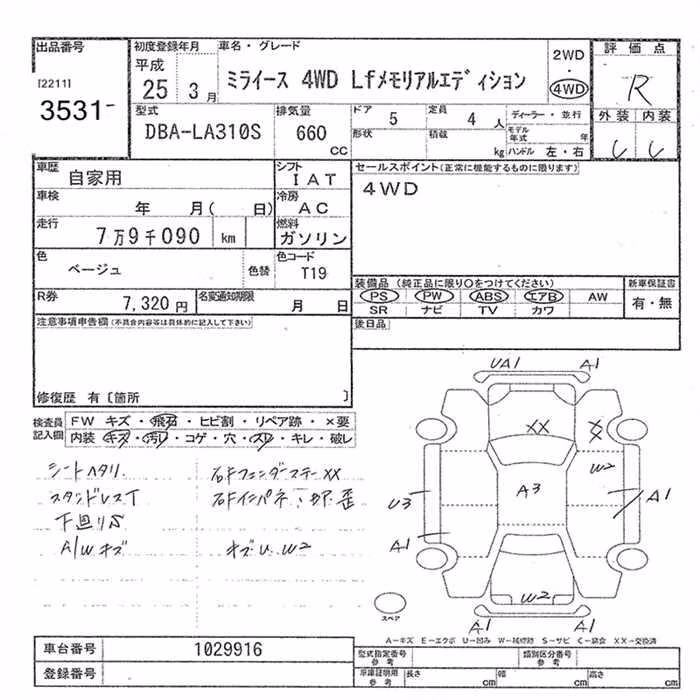 出品番号 初度登録年月 車名・グレード 2WD 評価点
[2211] 平成 ミライース 4WD Lfメモリアルエディション ・ R
3531 25 3月 4WD 外装 内装
型式 排気量 ドア 5 定員 4人 ディーラー・並行
DBA-LA310S 660 CC 形状 積載 kg モデル年式 年 ハンドル 左・右
車歴 自家用 シフト IAT セールスポイント(正常に機能するものに限ります)
車検 年 月( 日) 冷房 AC 4WD
走行 7万9千090 km 燃料 ガソリン
色 ベージュ 色替 色コード T19
装備品 (純正品に限り○をつけてください) 新車保証書
R券 7,320円 名変通知期限 月 日 PS PW ABS エアB AW 有・無
SR ナビ TV カワ
注意事項申告欄(不具合内容等は具体的に記入して下さい) 後日品
修復歴 有〔箇所 〕
検査員記入欄 FW キズ・飛石・ヒビ割・リペア跡・×要
内装 キズ・汚レ・コゲ・穴・スレ・キレ・破レ
シートヘタリ 右Fフェンダーステー XX
スタッドレスT 右Fインパネ
下回りS
A/W キズ キズ U W2
UA1 A1
XX XX
W2
A3
U3 A1
A1
W2
A1 A1
スペア
A-キズ E-エクボ U-凹み W-補修跡 S-サビ C-腐食 XX-交換済
車台番号 1029916 型式指定番号 参考 類別区分番号 参考
登録番号 車庫証明用 参考 長さ cm 幅 cm 高さ cm